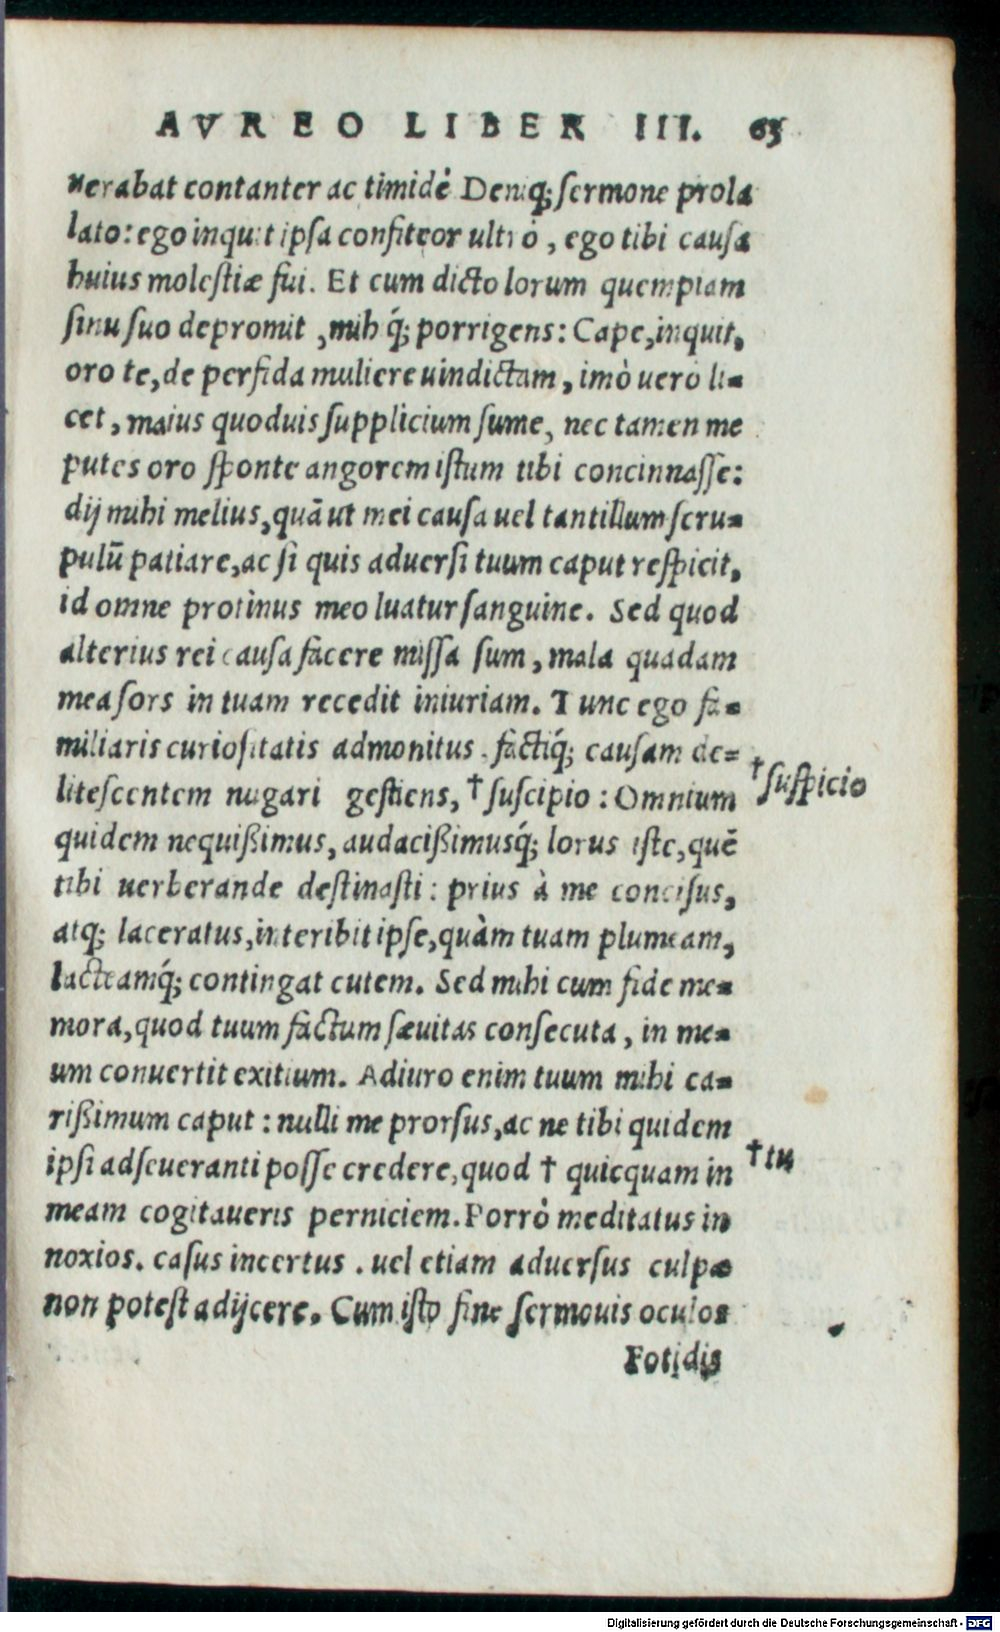 AVREO LIBER III. 65
uerabat contanter ac timidè Deniq; sermone prola
lato: ego inquit ipsa confiteor ultrò, ego tibi causa
huius molestiæ fui. Et cum dicto lorum quempiam
sinu suo depromit, mihiq́; porrigens: Cape, inquit,
oro te, de perfida muliere uindictam, imò uero li-
cet, maius quoduis supplicium sume, nec tamen me
putes oro sponte angorem istum tibi concinnasse:
dij mihi melius, quā ut mei causa uel tantillum scru-
pulū patiare, ac si quis aduersi tuum caput respicit,
id omne protinus meo luatur sanguine. Sed quod
alterius rei causa facere missa sum, mala quadam
mea sors in tuam recedit iniuriam. Tunc ego fa-
miliaris curiositatis admonitus. factiq́; causam de-
litescentem nugari gestiens, † suscipio: Omnium
† suspicio
quidem nequißimus, audacißimusq́; lorus iste, quē
tibi uerberande destinasti: prius à me concisus,
atq; laceratus, interibit ipse, quàm tuam plumeam,
lacteamq́; contingat cutem. Sed mihi cum fide me-
mora, quod tuum factum sæuitas consecuta, in me-
um conuertit exitium. Adiuro enim tuum mihi ca-
rißimum caput: nulli me prorsus, ac ne tibi quidem
ipsi adseueranti posse credere, quod † quicquam in
† tu
meam cogitaueris perniciem. Porrò meditatus in
noxios. casus incertus. uel etiam aduersus culpæ
non potest adijcere. Cum isto fine sermouis oculos
Fotidis
Digitalisierung gefördert durch die Deutsche Forschungsgemeinschaft - DFG